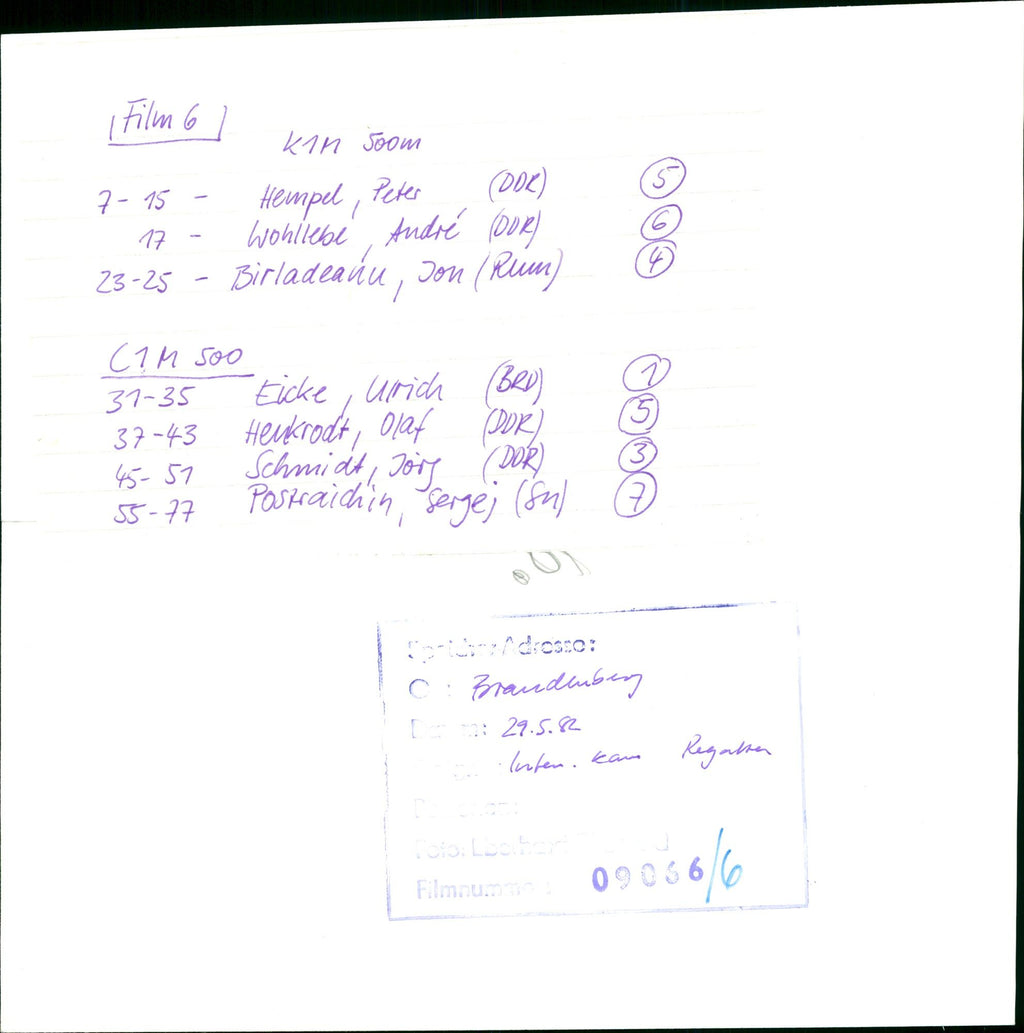 Film 6
K1M 500m
7-15 - Hempel, Peter (DDR) 5
17 - Wohllebe, André (DDR) 6
23-25 - Birladeanu, Jon (Rum) 4
C1M 500
31-35 Eicke, Ulrich (BRD) 1
37-43 Heukrodt, Olaf (DDR) 5
45-51 Schmidt, Jörg (DDR) 3
55-77 Postraichin, Sergej (SU) 7
Adresse:
Brandenburg
29.5.82
Intern. Kanu Regatten
Foto: Eberhard
Filmnummer: 09066/6